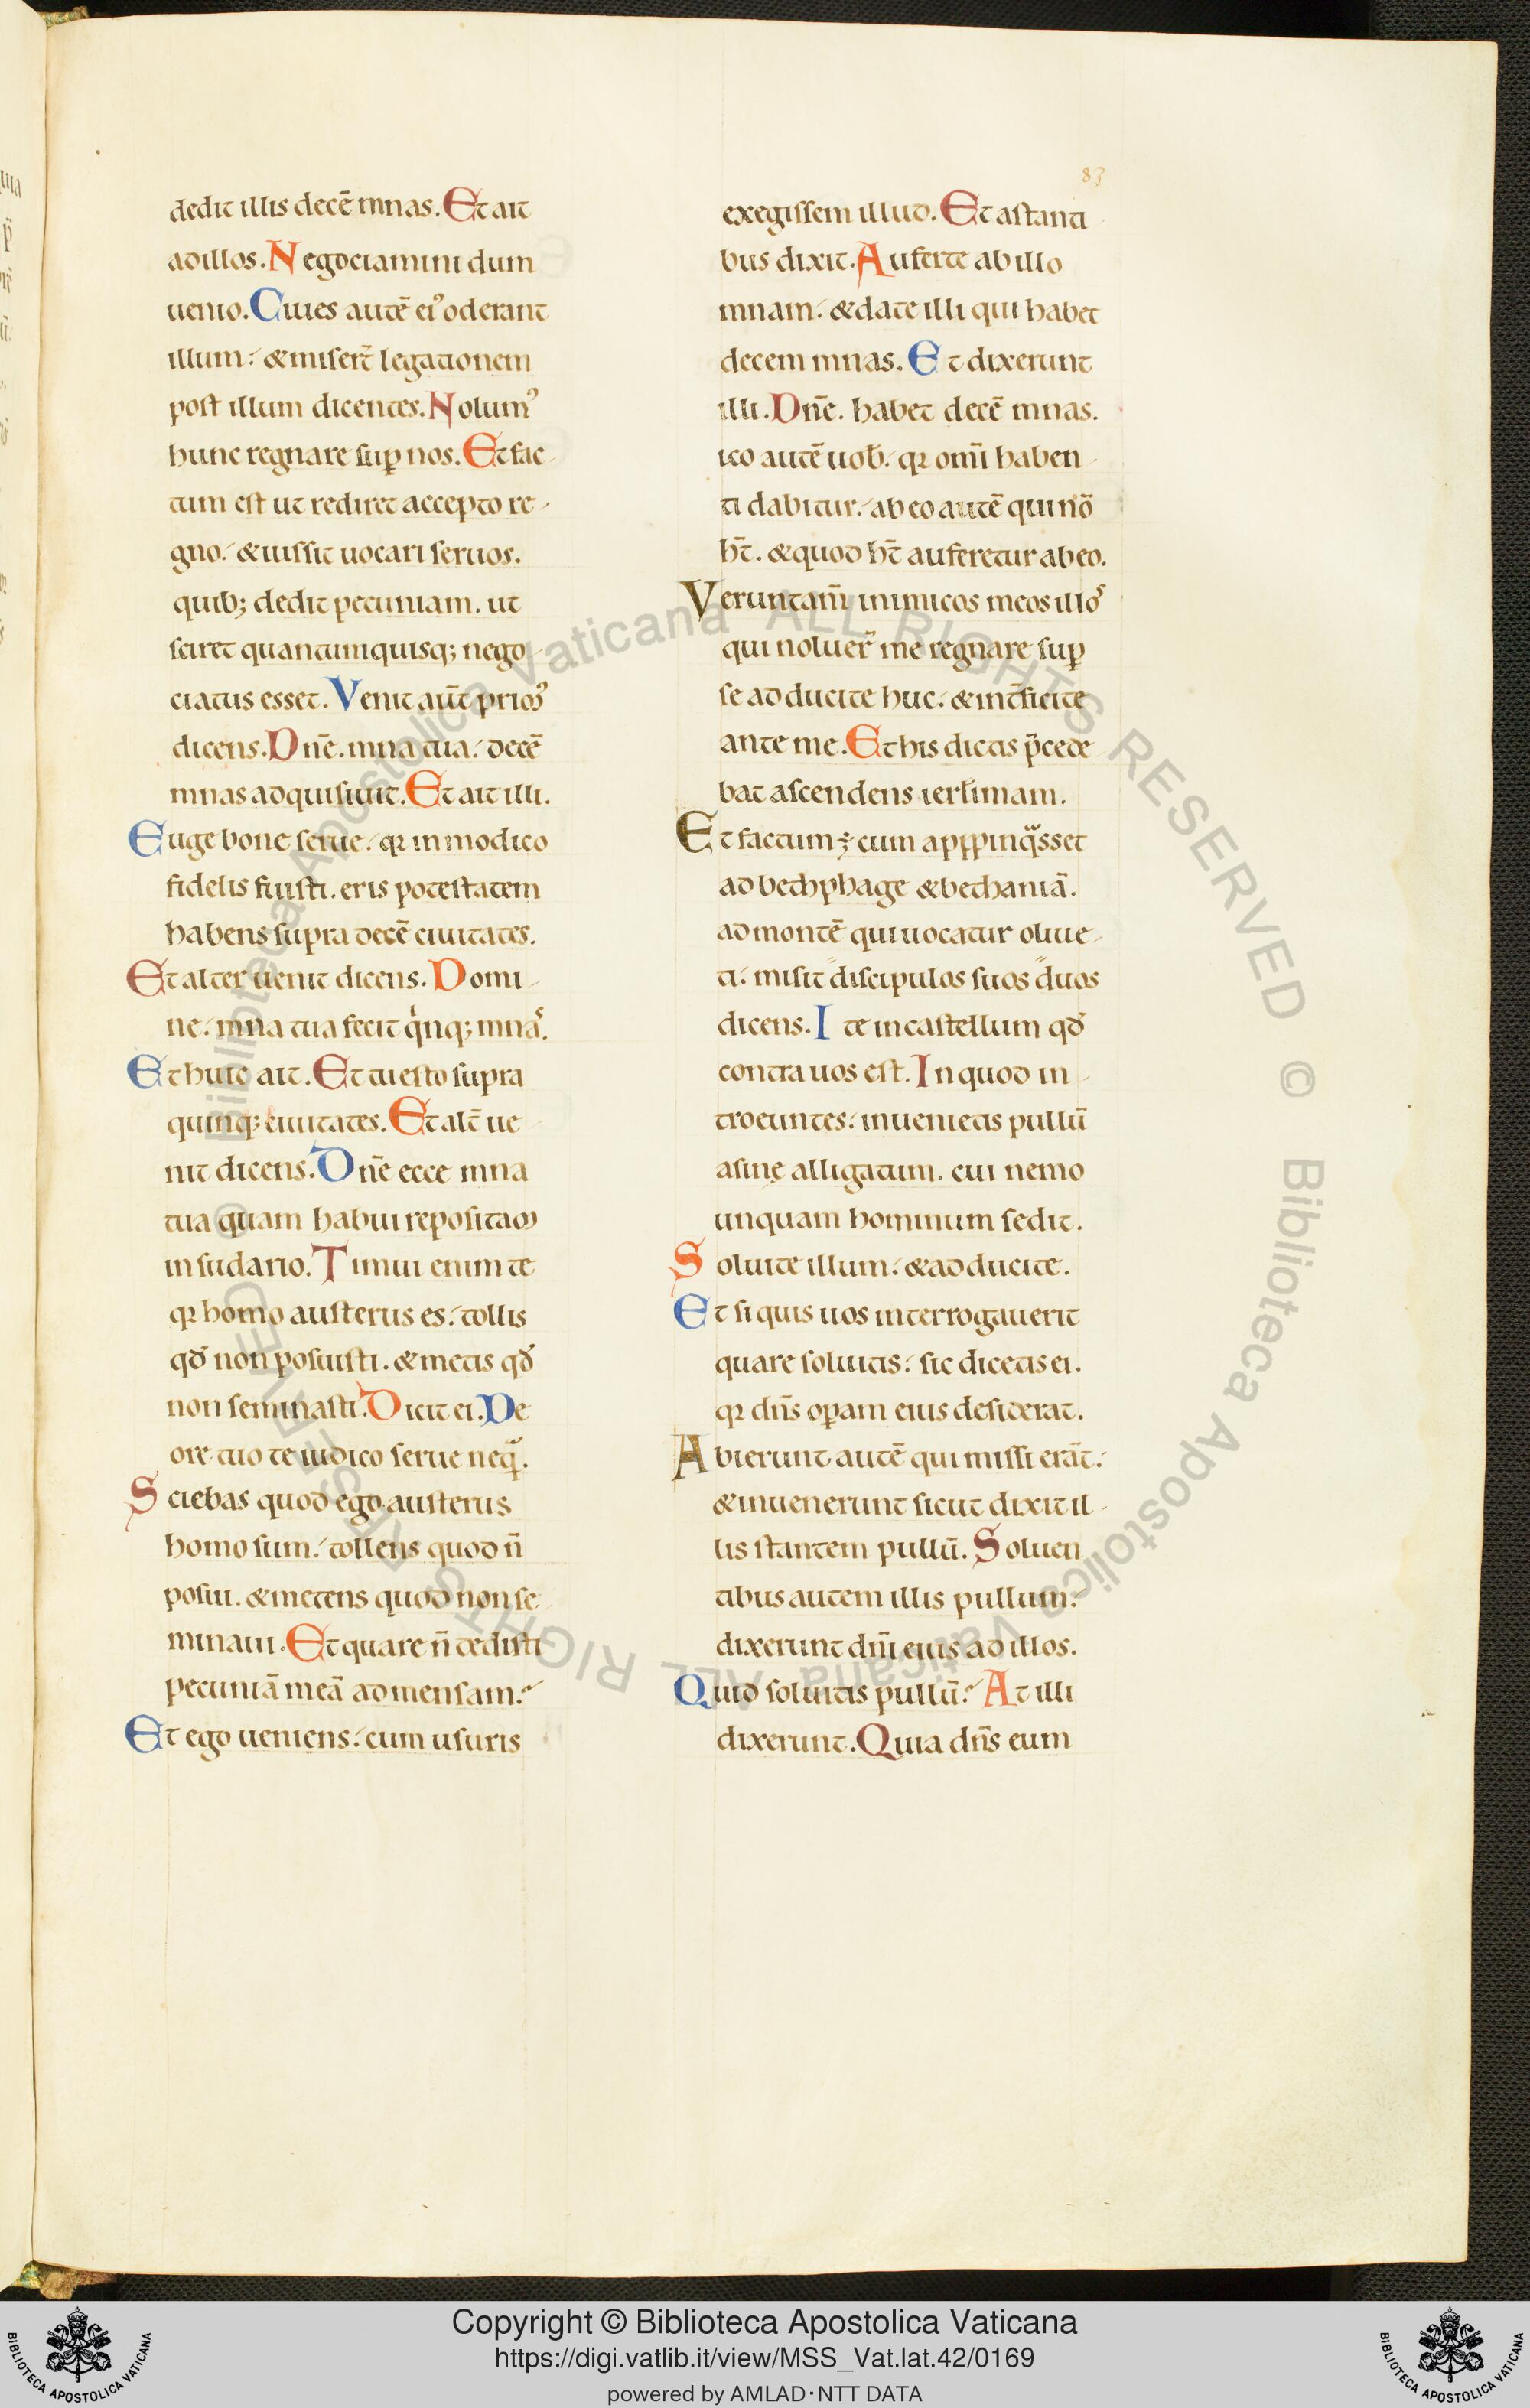 83
dedit illis decē mnas. Et ait
ad illos. Negociamini dum
uenio. Ciues autē ei᾽ oderant
illum: & miser̄t legationem
post illum dicentes. Nolum᾽
hunc regnare suꝑ nos. Et fac-
tum est ut rediret accepto re-
gno: & iussit uocari seruos.
quib; dedit pecuniam. ut
sciret quantum quisq; nego-
ciatus esset. Venit aūt prior᾽
dicens. Dn̄e. mna tua: decē
mnas adquisiuit. Et ait illi.
Euge bone serue: qꝛ in modico
fidelis fuisti. eris potestatem
habens supra decē ciuitates.
Et alter uenit dicens. Domi-
ne: mna tua fecit qͥnq; mnaˢ.
Et huic ait. Et tu esto supra
quinq; ciuitates. Et alt̄ ue-
nit dicens. Dn̄e ecce mna
tua quam habui repositam
in sudario. Timui enim te
qꝛ homo austerus es: tollis
qđ non posuisti. & metis qđ
non seminasti. Dicit ei. De
ore tuo te iudico serue neqᵃ.
Sciebas quod ego austerus
homo sum: tollens quod n̄
posui. & metens quod non se-
minaui. Et quare n̄ dedisti
pecuniā meā ad mensam?
Et ego ueniens: cum usuris
exegissem illud. Et astanti-
bus dixit. Auferte ab illo
mnam: & date illi qui habet
decem mnas. Et dixerunt
illi. Dn̄e. habet decē mnas.
ico autē uob̄: qꝛ omī haben-
ti dabitur: ab eo autē qui nō
ht̄. & quod ht̄ auferetur ab eo.
Veruntam̄ inimicos meos illoˢ
qui noluer̄ me regnare suꝑ
se adducite huc: & int̄ficite
ante me. Et his dictis p̄cede
bat ascendens ierl̄imam.
Et factum ÷ cum apꝓpinqᵃsset
ad bethphage & bethaniā.
ad montē qui uocatur oliue-
ti: misit discipulos suos duos
dicens. Ite in castellum qđ
contra uos est. In quod in-
troeuntes: inuenietis pullū
asinę alligatum. cui nemo
unquam hominum sedit.
Soluite illum: & adducite.
Et si quis uos interrogauerit
quare soluitis: sic dicetis ei.
qꝛ dn̄s oꝑam eius desiderat.
Abierunt autē qui missi erāt:
& inuenerunt sicut dixit il-
lis stantem pullū. Soluen
tibus autem illis pullum:
dixerunt dn̄i eius ad illos.
Quid soluitis pullū? At illi
dixerunt. Quia dn̄s eum
© Biblioteca Apostolica Vaticana ALL RIGHTS RESERVED © Biblioteca Apostolica Vaticana ALL RIGHTS RESERVED
Copyright © Biblioteca Apostolica Vaticana
https://digi.vatlib.it/view/MSS_Vat.lat.42/0169
powered by AMLAD·NTT DATA
BIBLIOTECA APOSTOLICA VATICANA
BIBLIOTECA APOSTOLICA VATICANA